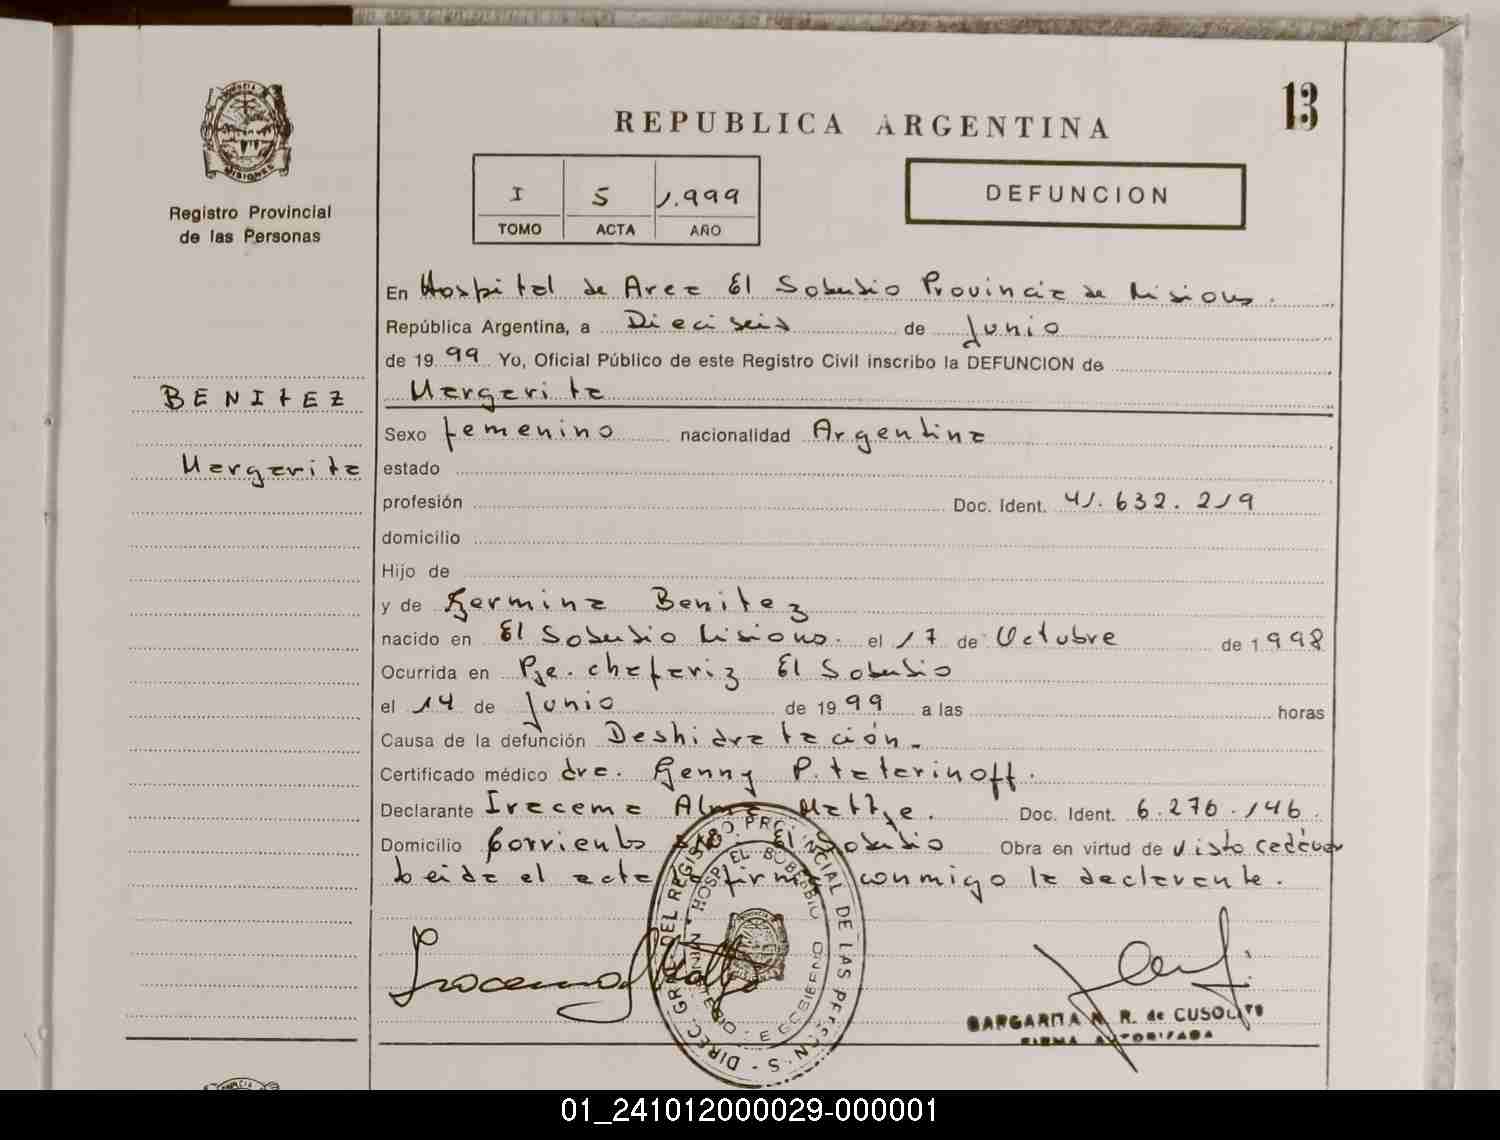 13
REPUBLICA ARGENTINA
MISIONES
Registro Provincial
de las Personas
I 5 1.999
TOMO ACTA AÑO
DEFUNCION
BENITEZ
Margarita
En Hospital de Area El Soberbio Provincia de Misiones.
República Argentina, a Dieciseis de Junio
de 1999 Yo, Oficial Público de este Registro Civil inscribo la DEFUNCION de
Margarita
Sexo femenino nacionalidad Argentina
estado
profesión Doc. Ident. 41.632.219
domicilio
Hijo de
y de Germina Benitez
nacido en El Soberbio Misiones. el 17 de Octubre de 1998
Ocurrida en Pje. chafariz El Soberbio
el 14 de Junio de 1999 a las horas
Causa de la defunción Deshidratación.
Certificado médico dra. Genny P. tatarinoff.
Declarante Iracema Alma Mattje. Doc. Ident. 6.276.146
Domicilio Corrientes El Soberbio Obra en virtud de visto cadáver
Leida el acta la firma conmigo la declarante.
DIREC. GRAL. DEL REGISTRO PROVINCIAL DE LAS PERSONAS
HOSP. EL SOBERBIO
MINISTERIO DE GOBIERNO
MARGARITA N. R. de CUSOLITO
FIRMA AUTORIZADA
01_241012000029-000001